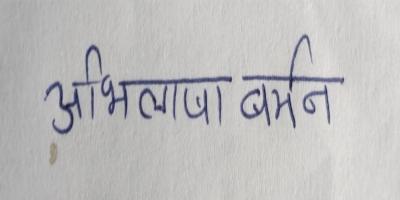 अभिलाषा बर्मन